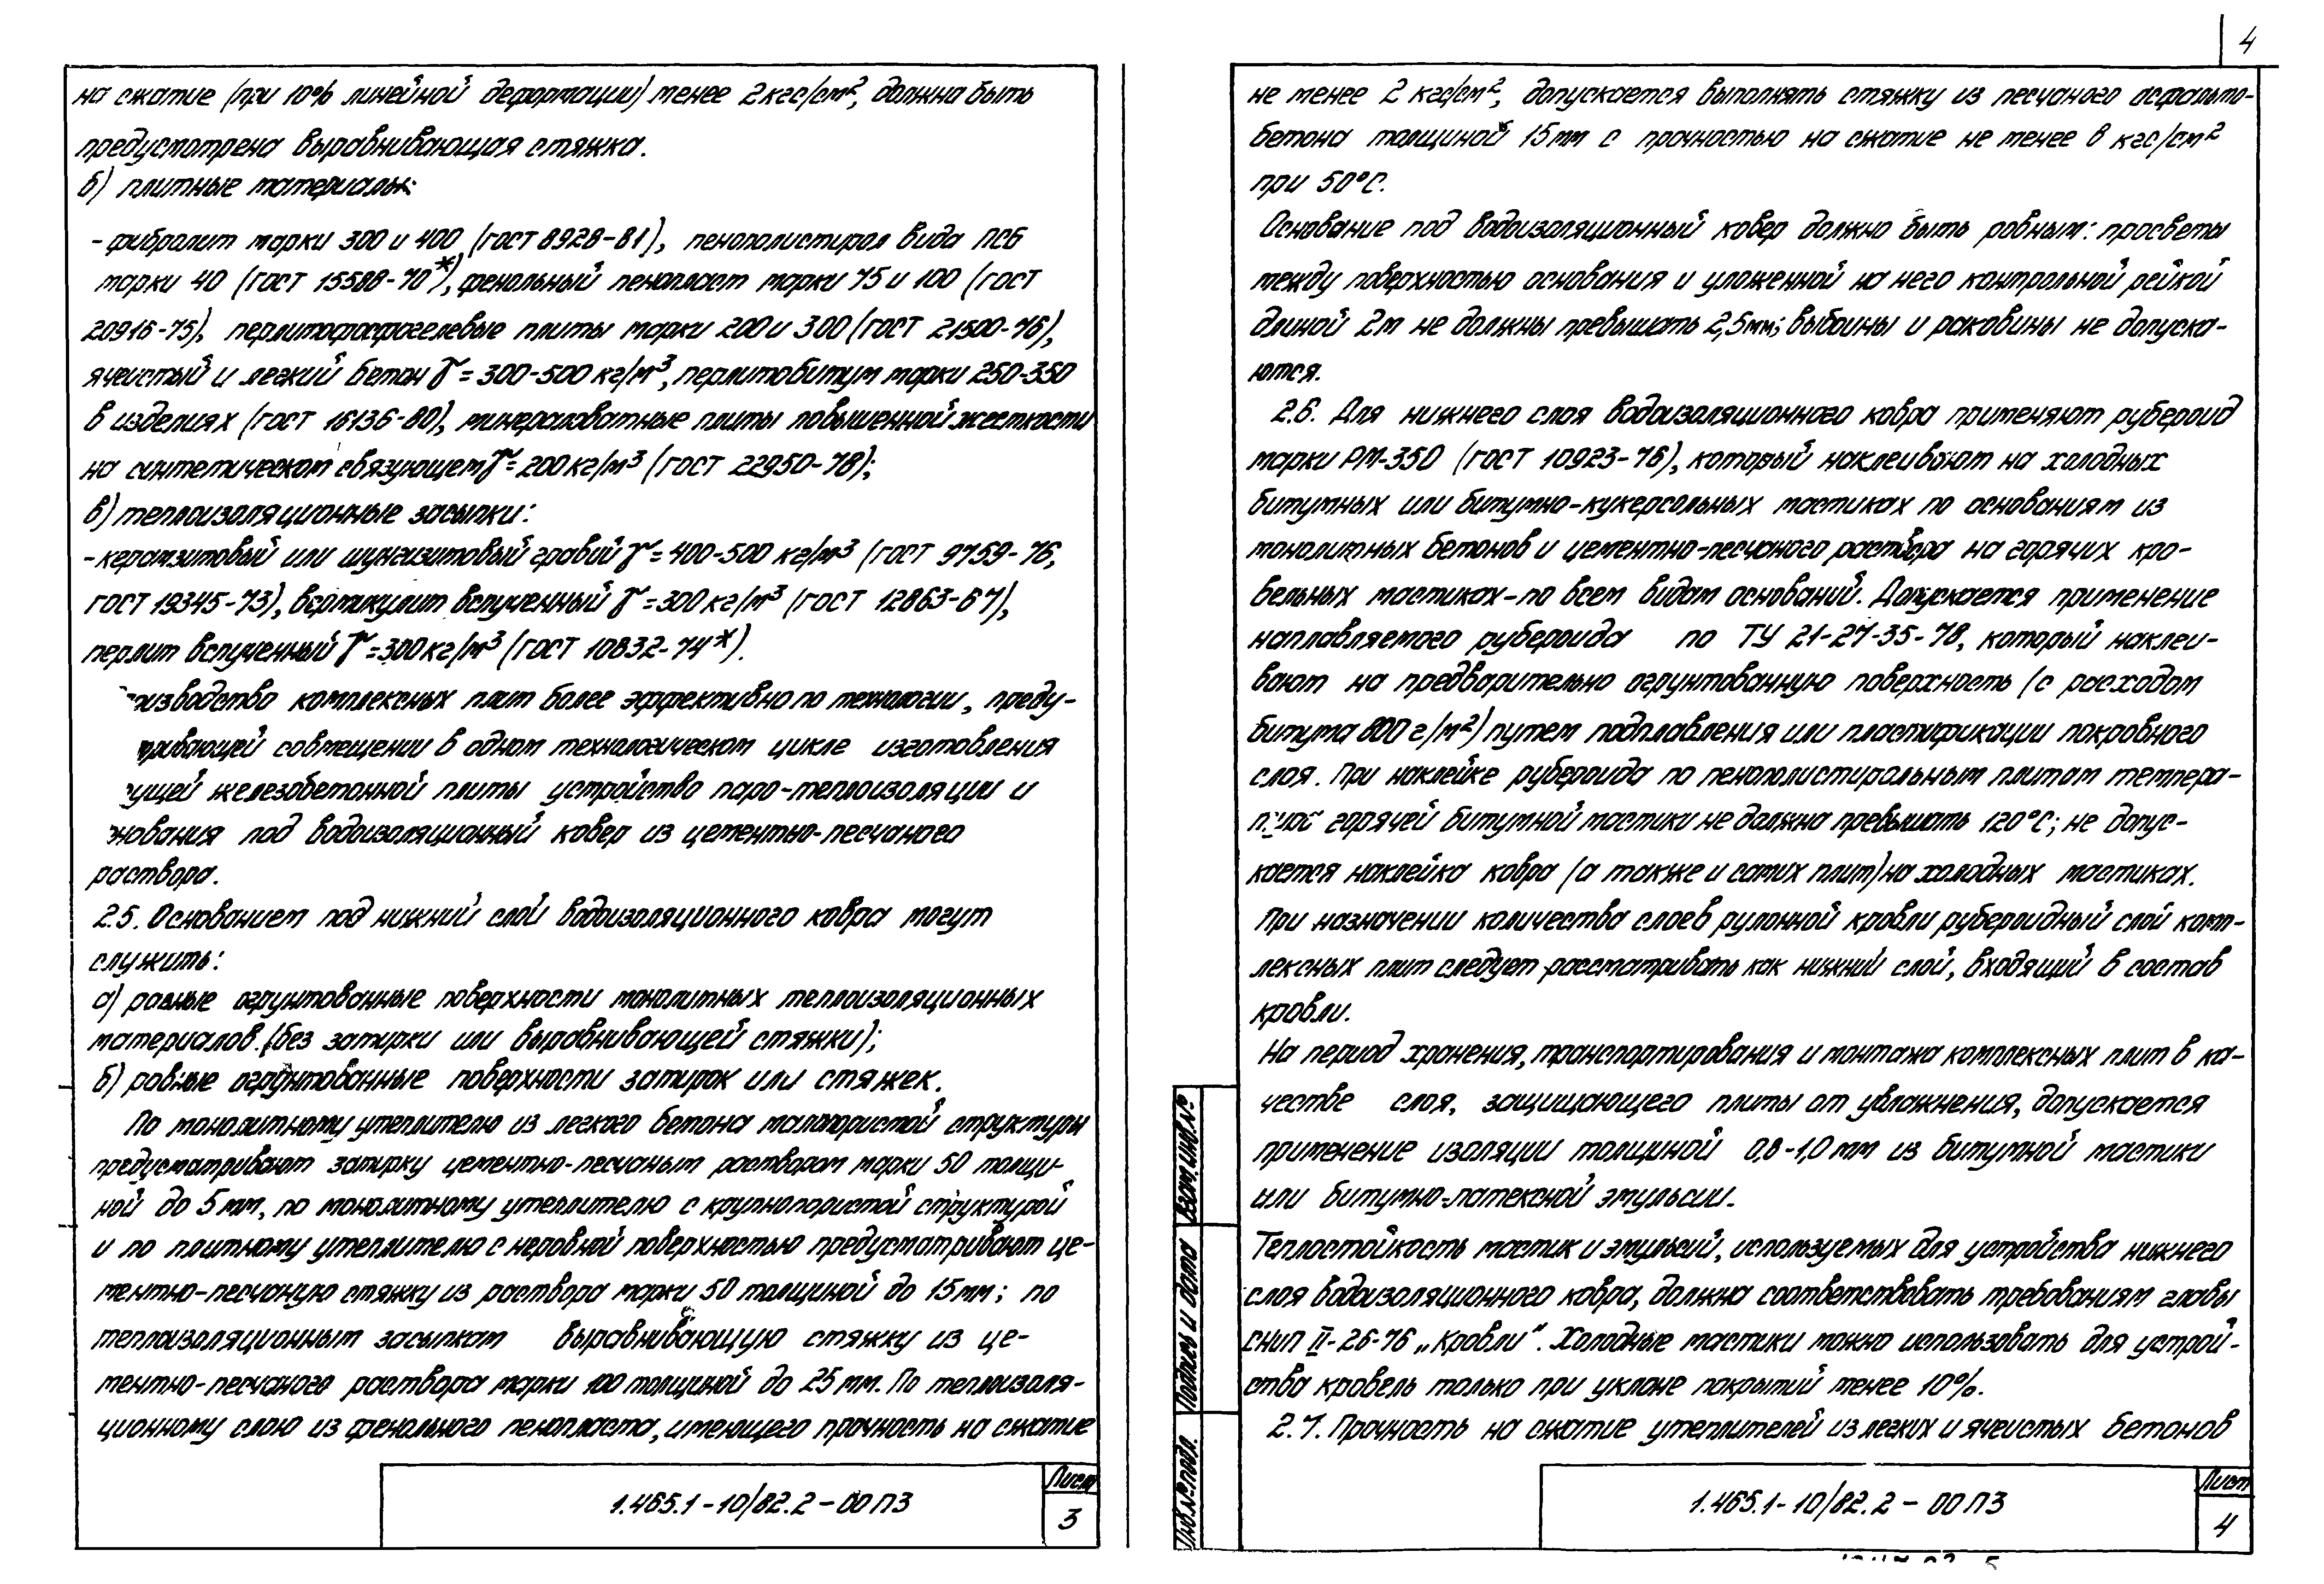 на сжатие (при 10% линейной деформации) менее 2кгс/см², должна быть
предусмотрена выравнивающая стяжка.
б) плитные материалы:
- фибролит марки 300 и 400 (ГОСТ 8928-81), пенополистирол вида ПСБ
марки 40 (ГОСТ 15588-70*), фенольный пенопласт марки 75 и 100 (ГОСТ
20916-75), перлитофосфогелевые плиты марки 200 и 300 (ГОСТ 21500-76),
ячеистый и легкий бетон γ=300-500 кг/м³, перлитобитум марки 250-350
в изделиях (ГОСТ 16136-80), минераловатные плиты повышенной жесткости
на синтетическом связующем γ=200кг/м³ (ГОСТ 22950-78);
в) теплоизоляционные засыпки:
-керамзитовый или шунгизитовый гравий γ=400-500 кг/м³ (ГОСТ 9759-76,
ГОСТ 19345-73), вермикулит вспученный γ=300кг/м³ (ГОСТ 12863-67),
перлит вспученный γ=300кг/м³ (ГОСТ 10832-74*).
изводство комплексных плит более эффективно по технологии, преду-
ривающей совмещении в одном технологическом цикле изготовления
ущей железобетонной плиты устройство паро-теплоизоляции и
нования под водоизоляционный ковер из цементно-песчаного
раствора.
2.5. Основанием под нижний слой водоизоляционного ковра могут
служить:
а) ровные огрунтованные поверхности монолитных теплоизоляционных
материалов (без затирки или выравнивающей стяжки);
б) ровные огрунтованные поверхности затирок или стяжек.
По монолитному утеплителю из легкого бетона малопористой структуры
предусматривают затирку цементно-песчаным раствором марки 50 толщи-
ной до 5 мм, по монолитному утеплителю с крупнопористой структурой
и по плитному утеплителю с неровной поверхностью предусматривают це-
ментно-песчаную стяжку из раствора марки 50 толщиной до 15мм; по
теплоизоляционным засыпкам выравнивающую стяжку из це-
ментно-песчаного раствора марки 100 толщиной до 25 мм. По теплоизоля-
ционному слою из фенольного пенопласта, имеющего прочность на сжатие
1.465.1-10/82.2-00ПЗ
Лист
3
4
не менее 2 кгс/см², допускается выполнять стяжку из песчаного асфальто-
бетона толщиной 15мм с прочностью на сжатие не менее 8 кгс/см²
при 50°С.
Основание под водоизоляционный ковер должно быть ровным: просветы
между поверхностью основания и уложенной на него контрольной рейкой
длиной 2м не должны превышать 2,5мм; выбоины и раковины не допуска-
ются.
2.6. Для нижнего слоя водоизоляционного ковра применяют рубероид
марки РМ-350 (ГОСТ 10923-76), который наклеивают на холодных
битумных или битумно-кукерсольных мастиках по основаниям из
монолитных бетонов и цементно-песчаного раствора на горячих кро-
вельных мастиках-по всем видам оснований. Допускается применение
наплавляемого рубероида по ТУ 21-27-35-78, который наклеи-
вают на предварительно огрунтованную поверхность (с расходом
битума 800 г/м²) путем подплавления или пластификации покровного
слоя. При наклейке рубероида по пенополистирольным плитам темпера-
горячей битумной мастики не должна превышать 120°С; не допус-
кается наклейка ковра (а также и самих плит) на холодных мастиках.
При назначении количества слоев рулонной кровли рубероидный слой комп-
лексных плит следует рассматривать как нижний слой, входящий в состав
кровли.
На период хранения, транспортирования и монтажа комплексных плит в ка-
честве слоя, защищающего плиты от увлажнения, допускается
применение изоляции толщиной 0,8-1,0 мм из битумной мастики
или битумно-латексной эмульсии.
Теплостойкость мастик и эмульсий, используемых для устройства нижнего
слоя водоизоляционного ковра, должна соответствовать требованиям главы
СНиП II-26-76 „Кровли“. Холодные мастики можно использовать для устрой-
ства кровель только при уклоне покрытий менее 10%.
2.7. Прочность на сжатие утеплителей из легких и ячеистых бетонов
Взам. инв. №
Подпись и дата
Инв. № подл.
1.465.1-10/82.2-00ПЗ
Лист
4